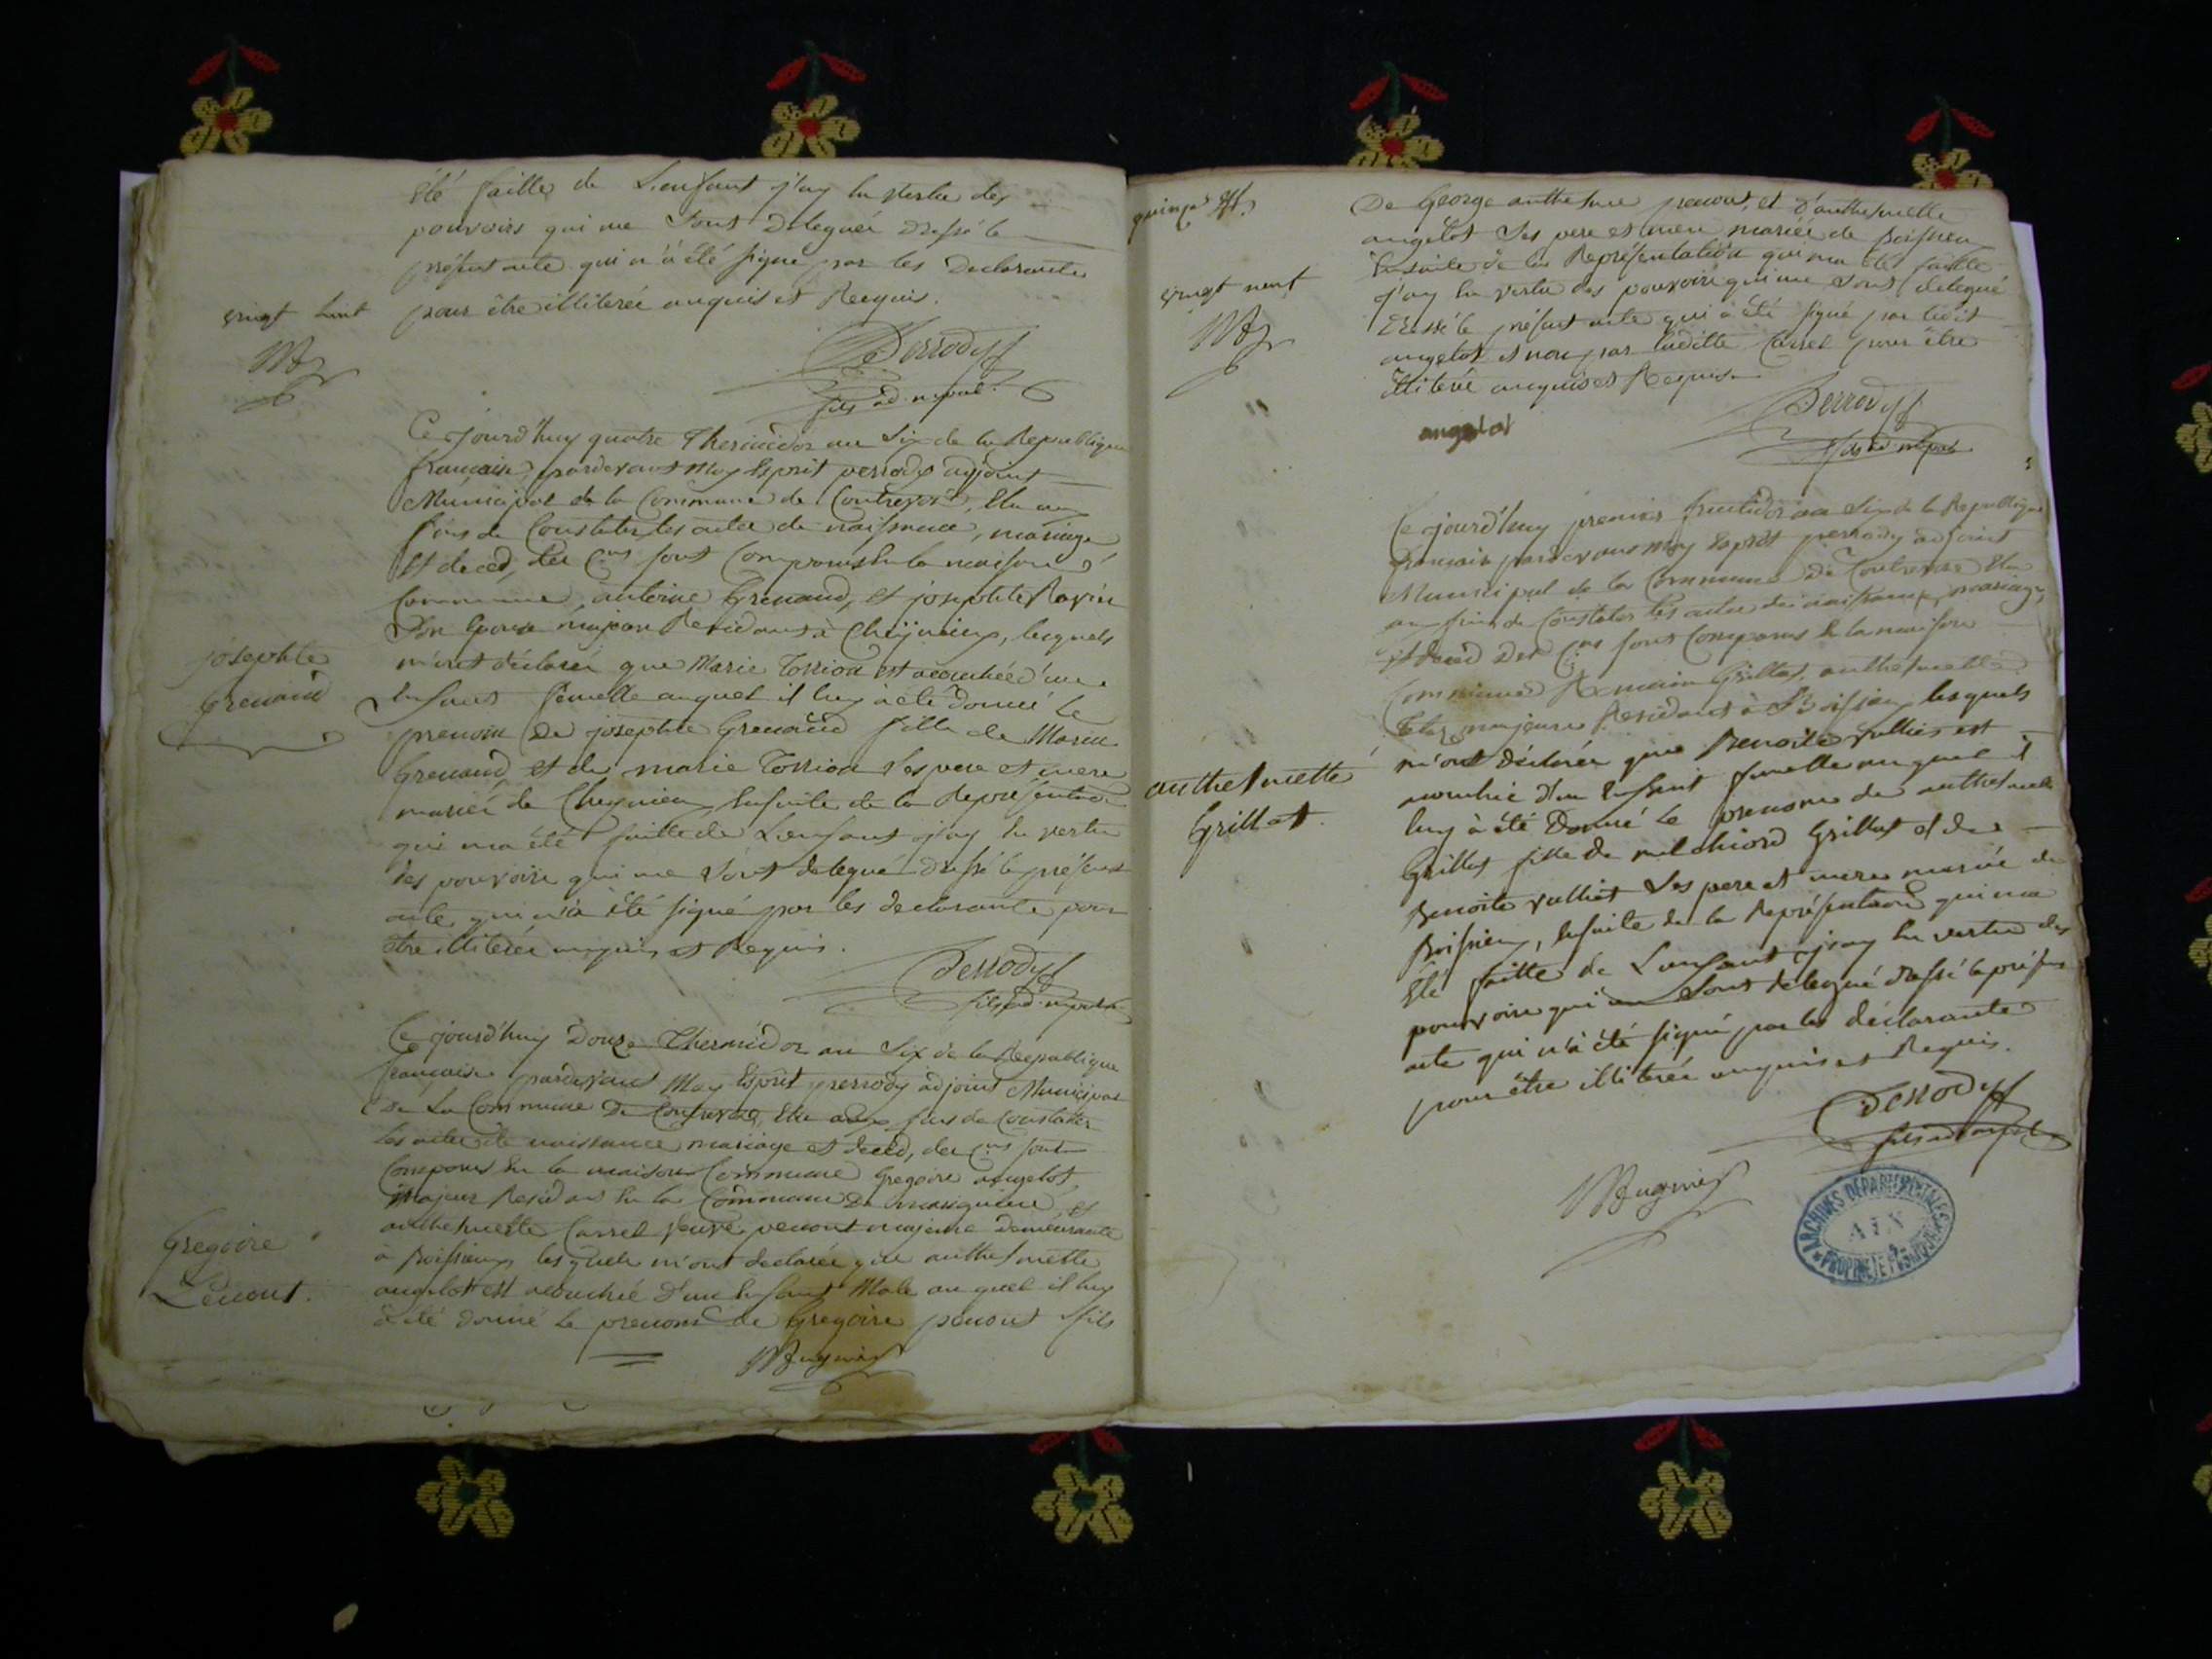 été faitte de L'enfant j'ay En vertu des
pouvoirs qui me Sont Délégués Dressé le
présent acte qui n'a été signé par les Declarants
pour être illiteré enquis et Requis.
vingt huit
Perrody
fils ad. mpal.
Ce jourd'huy quatre Thermidor an Six de la Republique
française, pardevant Moy Esprit perrody adjoint
Municipal de la Commune de Contrevoz, Elu aux
fins de Constater les actes de naissance, mariage
Et deced, des Cens sont Comparus En la maison
Commune antoine Grenaud, et josephte Ravin
Son Epouse majeur Residants à Cheynieux, lesquels
m'ont déclarés que Marie Torrion est acouchée d'un
Enfant femelle auquel il luy à été donné le
prenom De josephte Grenaud fille de Marin
Grenaud, et de marie Torrion Ses pere et mere
mariés de Cheynieux Ensuite de la Representation
qui m'a été faitte de L'enfant j'ay En vertu
des pouvoirs qui me Sont delegués dressé le présent
acte qui n'à été signé par les declarants pour
être illiterés enquis et Requis.
josephte
Grenaud
Perrody
fils ad. mpal
Ce jourd'huy Douze Thermidor an Six de la Republique
française pardevant Moy Esprit perrody adjoint Municipal
De La Commune De Contrevoz, Elu aux fins de Constater
les actes de naissance mariage et deced, des Cens sont
Comparus En la maison Commune Gregoire angelot
Majeur Residant En la Commune De et
anthelmette Carrel veuve penont majeure demeurante
a Boissieux lesquels m'ont declarés que anthelmette
angelot est acouchée d'un Enfant Male au quel il luy
à été donné le prenom de Gregoire penont fils
Gregoire
Penont.
quinze
De George anthelme penont, et d'anthelmette
angelot Ses pere et mere mariés de Boissieu
Ensuite de la Représentation qui m'a été faitte
j'ay En vertu des pouvoirs qui me sont délégué
Dressé le présent acte qui à été signé par ledit
angelot et non par laditte Carrel pour être
illiterée enquis et Requis.
vingt neuf
angelot
Perrody
fils ad mpal
Ce jourd'huy premier fructidor an Six de la Republique
française pardevant Moy Esprit perrody adjoint
Municipal de la Commune de Contrevoz Elu
aux fins de Constater les actes de naissance, mariage,
et deced Des Cens sont Comparus En la maison
Commune Grillot, anthelmette
majeurs Residants à Boissieu, lesquels
m'ont déclarés que Benoite vulliet est
acouchée d'un Enfant femelle auquel il
luy à été Donné le prenom de anthelmette
Grillot fille de melchiord Grillot et de
Benoite vulliet Ses pere et mere mariés de
Boissieux, Ensuite de la Représentation qui m'a
Eté faitte de L'enfant j'ay En vertu des
pouvoirs qui me Sont delegué dressé le présent
acte qui n'à été signé par les déclarants
pour être illiterés enquis et Requis.
anthelmette
Grillot.
Perrody
ARCHIVES DEPARTEMENTALES
AIN
PROPRIETE PUBLIQUE